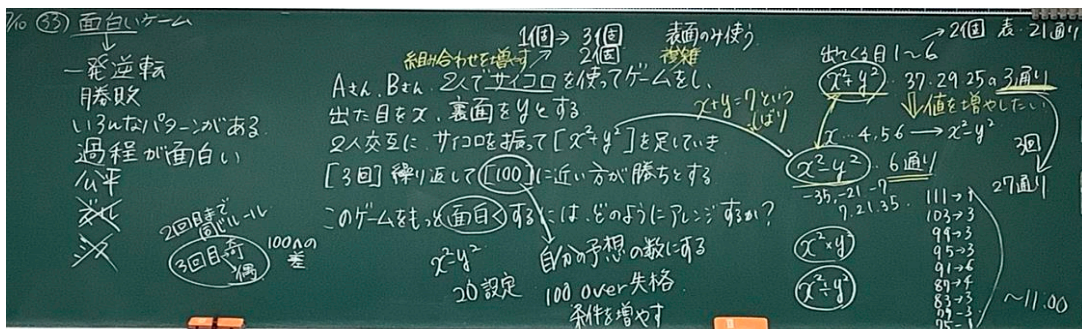 7/10 ㉝ 面白いゲーム
↓
一発逆転
勝敗
いろんなパターンがある
過程が面白い
公平
2回目まで
同じルール
3回目奇
偶
100への
差
1個→3個
2個
表面のみ使う
複雑
組み合わせを増やす
Aさん、Bさん 2人でサイコロを使ってゲームをし、
出た目をx、裏面をyとする
2人交互に、サイコロを振って[x²+y²]を足していき
[3回]繰り返して[100]に近い方が勝ちとする
このゲームをもっと面白くするには、どのようにアレンジするか?
x²-y²
20設定
自分の予想の数にする
100 over 失格
条件を増やす
x+y=7という
しばり
出てくる目1~6
→2個 表・21通り
x²+y² 37.29.25の3通り
値を増やしたい
x…4,5,6→x²-y²
x²-y² 6通り
-35,-21,-7
7.21.35.
x²×y²
x²÷y²
3回
27通り
111→1
103→3
99→3
95→3
91→6
87→4
83→3
79→3
75→1
~11:00